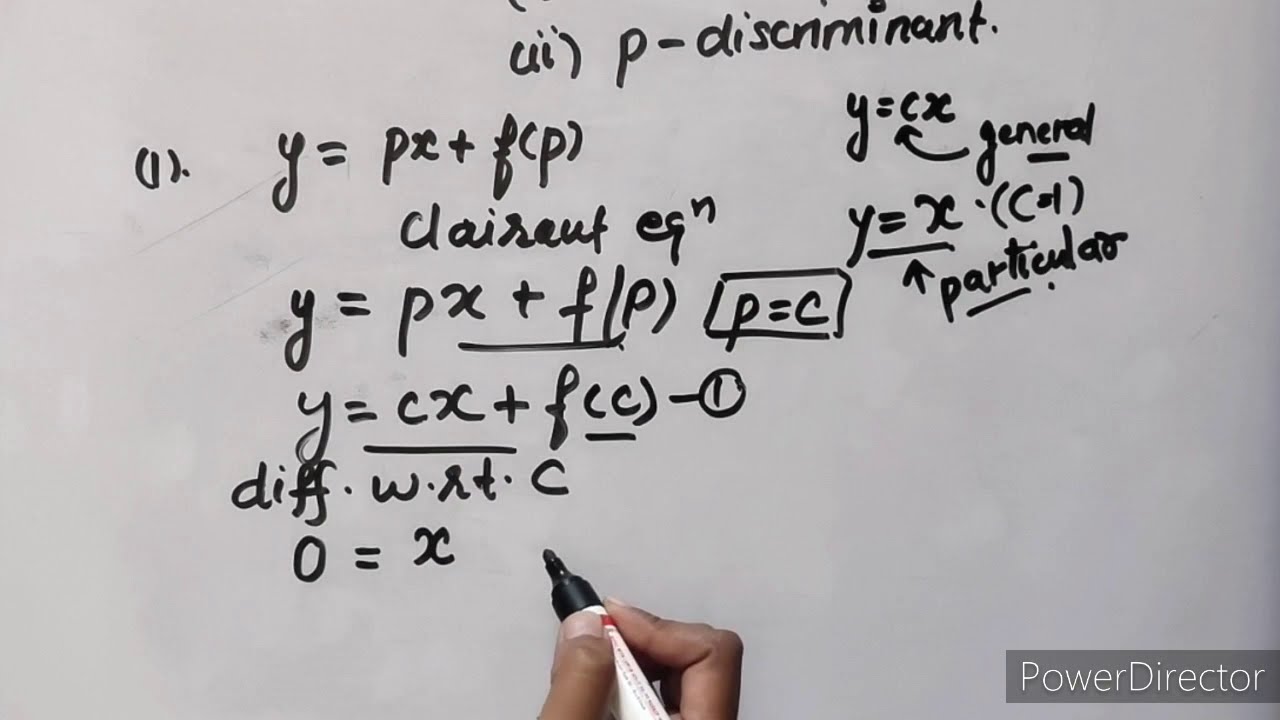 (ii) p-discriminant.
(1). y = px + f(p)
clairaut eqⁿ
y = px + f(p) p=c
y = cx + f(c) — ①
diff. w.r.t. c
0 = x
y=cx
general
y = x . (c=1)
particular
PowerDirector